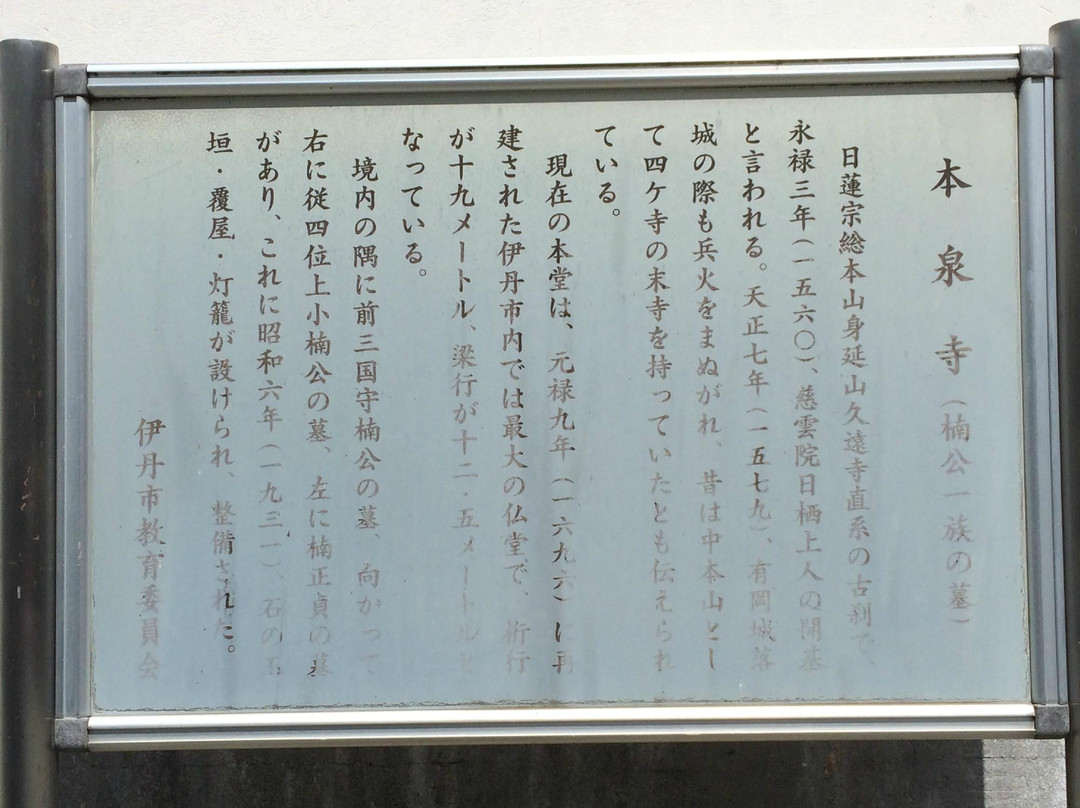 本泉寺（楠公一族の墓）
日蓮宗総本山身延山久遠寺直系の古刹で、
永禄三年（一五六〇）、慈雲院日栖上人の開基
と言われる。天正七年（一五七九）、有岡城落
城の際も兵火をまぬがれ、昔は中本山とし
て四ケ寺の末寺を持っていたとも伝えられ
ている。
現在の本堂は、元禄九年（一六九六）に再
建された伊丹市内では最大の仏堂で、桁行
が十九メートル、梁行が十二・五メートルと
なっている。
境内の隅に前三国守楠公の墓、向かって
右に従四位上小楠公の墓、左に楠正貞の墓
があり、これに昭和六年（一九三一）、石の玉
垣・覆屋・灯籠が設けられ、整備された。
伊丹市教育委員会